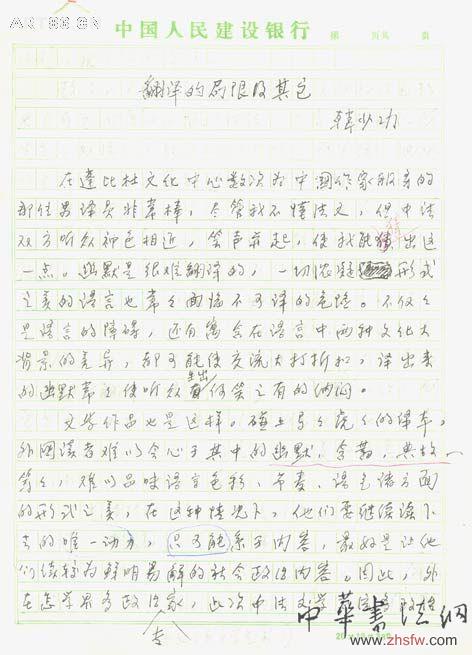 ARTS86.CN
中国人民建设银行
第 页共 页
翻译的局限及其它
韩少功
在蓬比杜文化中心数次为中国作家服务的
那位男译员非常棒,尽管我不懂法文,但中法
双方听众神色相近,笑声并起,使我能猜出这
一点。幽默是很难翻译的,一切浓凝形式
之美的语言也常常面临不可译的危险。不仅仅
是语言的障碍,还有寓含在语言中两种文化大
背景的差异,都可能使交流大打折扣,译出来
的幽默常常使听众生出何笑之有的纳闷。
文学作品也是这样。碰上马马虎虎的译本,
外国读者难以会心于其中的幽默,含蓄,典故
等等,难以品味语言色彩、节奏、语气诸方面
的形式之美,在这种情况下,他们要继续读下
去的唯一动力,只可能系于内容,最好是让他
们读较为鲜明易解的社会政治内容。因此,外
在怎学界多政治家,此次中法文学
专
中華書法網
www.zhsfw.com